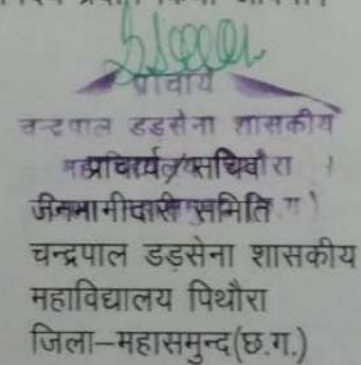 प्राचार्य
चन्द्रपाल डड़सेना शासकीय
प्राचार्य/सचिव
जनभागीदारी समिति
चन्द्रपाल डड़सेना शासकीय
महाविद्यालय पिथौरा
जिला–महासमुन्द(छ.ग.)